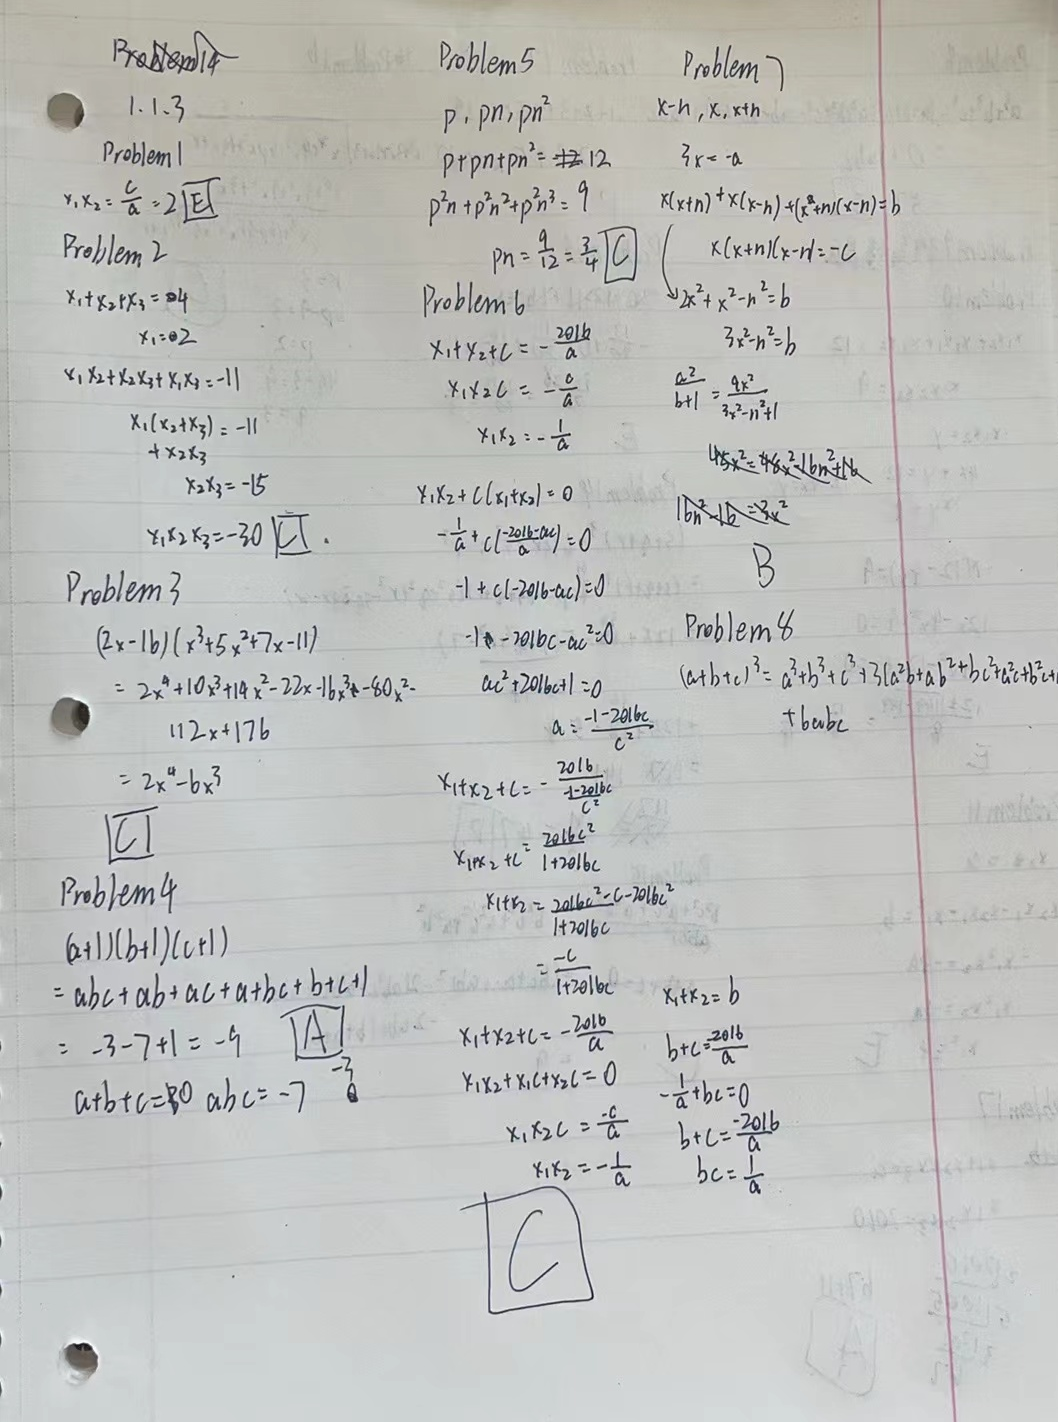 Problem 14
1.1.3
Problem 1
x₁x₂ = c/a = 2 E
Problem 2
x₁+x₂+x₃ = 4
x₁ = 2
x₁x₂+x₂x₃+x₁x₃ = -11
x₁(x₂+x₃) = -11
+ x₂x₃
x₂x₃ = -15
x₁x₂x₃ = -30 C.
Problem 3
(2x-16)(x³+5x²+7x-11)
= 2x⁴+10x³+14x²-22x-16x³-80x²-
112x+176
= 2x⁴-6x³
C
Problem 4
(a+1)(b+1)(c+1)
= abc+ab+ac+a+bc+b+c+1
= -3-7+1 = -9 A
a+b+c=0 abc=-7 -3
Problem 5
p, pn, pn²
p+pn+pn² = 12
p²n+p²n²+p²n³ = 9
pn = 9/12 = 3/4 C
Problem 6
x₁+x₂+c = -2016/a
x₁x₂c = -c/a
x₁x₂ = -1/a
x₁x₂+c(x₁+x₂) = 0
-1/a + c(-2016-ac/a) = 0
-1+c(-2016-ac)=0
-1-2016c-ac²=0
ac²+2016c+1=0
a = -1-2016c/c²
x₁+x₂+c = - 2016/(-1-2016c/c²)
x₁+x₂+c = 2016c²/1+2016c
x₁+x₂ = 2016c²-c-2016c²/1+2016c
= -c/1+2016c
x₁+x₂+c = -2016/a
x₁x₂+x₁c+x₂c = 0
x₁x₂c = -c/a
x₁x₂ = -1/a
x₁+x₂ = b
b+c = -2016/a
-1/a + bc = 0
b+c = -2016/a
bc = 1/a
C
Problem 7
x-n, x, x+n
3x = -a
x(x+n)+x(x-n)+(x+n)(x-n)=b
x(x+n)(x-n)=-c
2x²+x²-n²=b
3x²-n²=b
a²/b+1 = 9x²/3x²-n²+1
45x²=48x²-16n²+16
16n²-16=3x²
B
Problem 8
(a+b+c)³ = a³+b³+c³+3(a²b+ab²+bc²+a²c+b²c+
+6abc